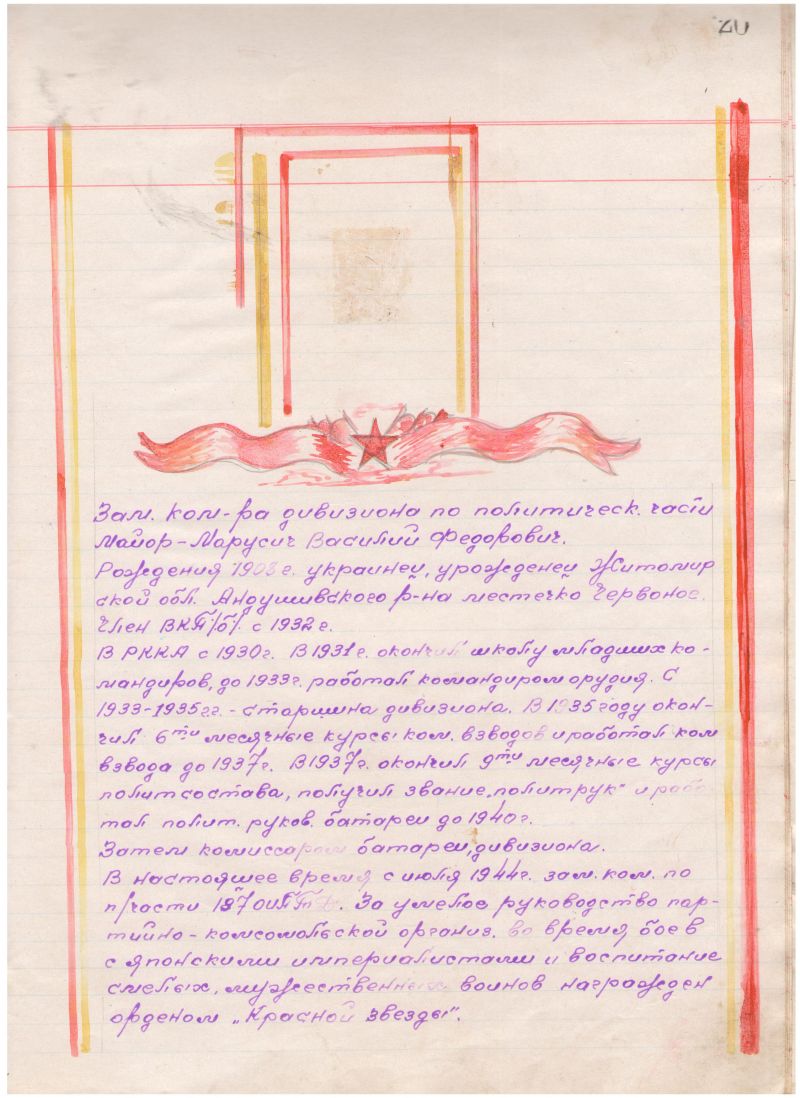 20
Зам. ком-ра дивизиона по политическ. части
майор-Марусич Василий Федорович.
Рождения 1903 г. украинец, уроженец Житомир
ской обл. Андушивского р-на местечко Червоное.
Член ВКП/б/. с 1932 г.
В РККА с 1930 г. В 1931 г. окончил школу младших ко-
мандиров, до 1933 г. работал командиром орудия. С
1933-1935 г.г. - старшина дивизиона. В 1935 году окон-
чил 6ти месячные курсы ком. взводов и работал ком
взвода до 1937 г. В 1937 г. окончил 9ти месячные курсы
политсостава, получил звание „политрук" и рабо
тал полит. руков. батареи до 1940 г.
Затем комиссаром батареи, дивизиона.
В настоящее время с июля 1944 г. зам. ком. по
п/части 187 . За умелое руководство пар-
тийно-комсомольской организ. во время боев
с японскими империалистами и воспитание
смелых, мужественных воинов награжден
орденом „Красной звезды".